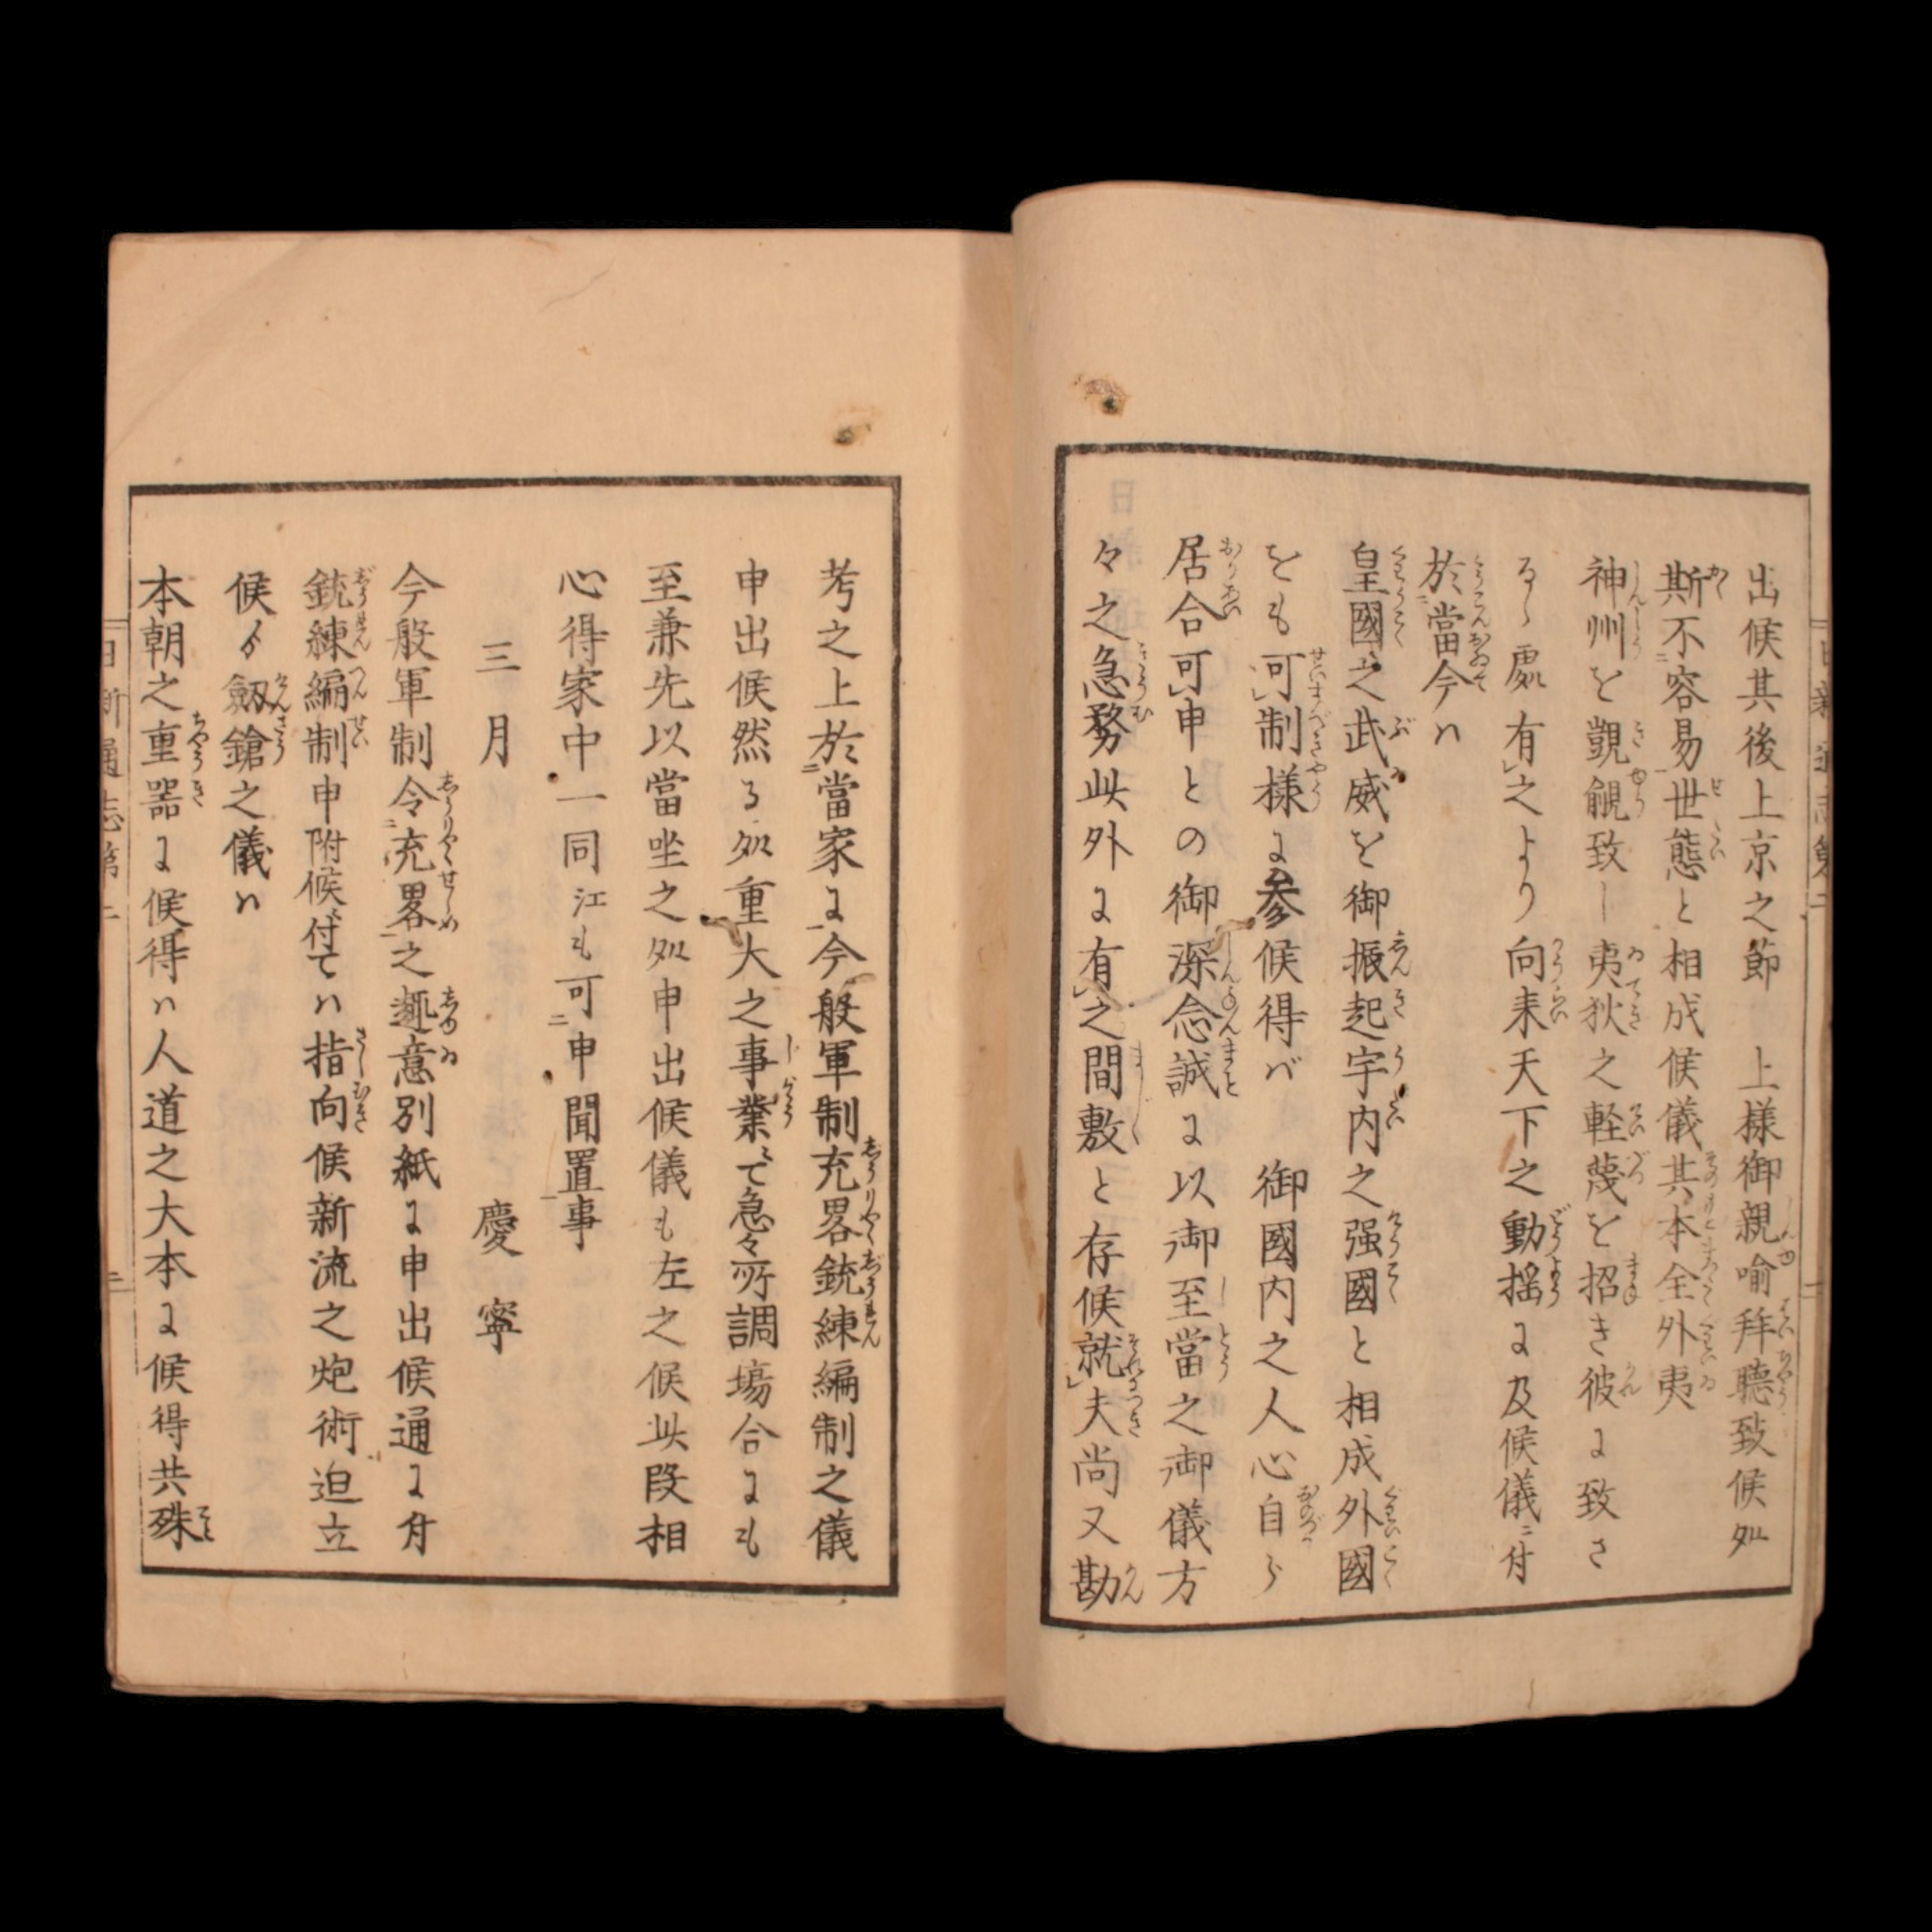 出候其後上京之節　上様御親喩拜聽致候処
斯不容易世態と相成候儀其本全外夷
神州を覬覦致し夷狄之軽蔑を招き彼に致さ
るゝ處有之より向来天下之動揺に及候儀ニ付
於當今ハ
皇國之武威を御振起宇内之强國と相成外國
をも可制様に参候得バ　御國内之人心自ら
居合可申との御深念誠に以御至當之御儀方
々之急務此外に有之間敷と存候就夫尚又勘
考之上於當家に今般軍制充畧銃練編制之儀
申出候然る処重大之事業ニて急々所調塲合にも
至兼先以當坐之処申出候儀も左之候此段相
心得家中一同江も可申聞置事
三月　慶寧
今般軍制令充畧之趣意別紙に申出候通に付
銃練編制申附候ニ付てハ指向候新流之炮術迫立
候ゟ劔鎗之儀ハ
本朝之重器に候得ハ人道之大本に候得共殊
日新通志第二
二